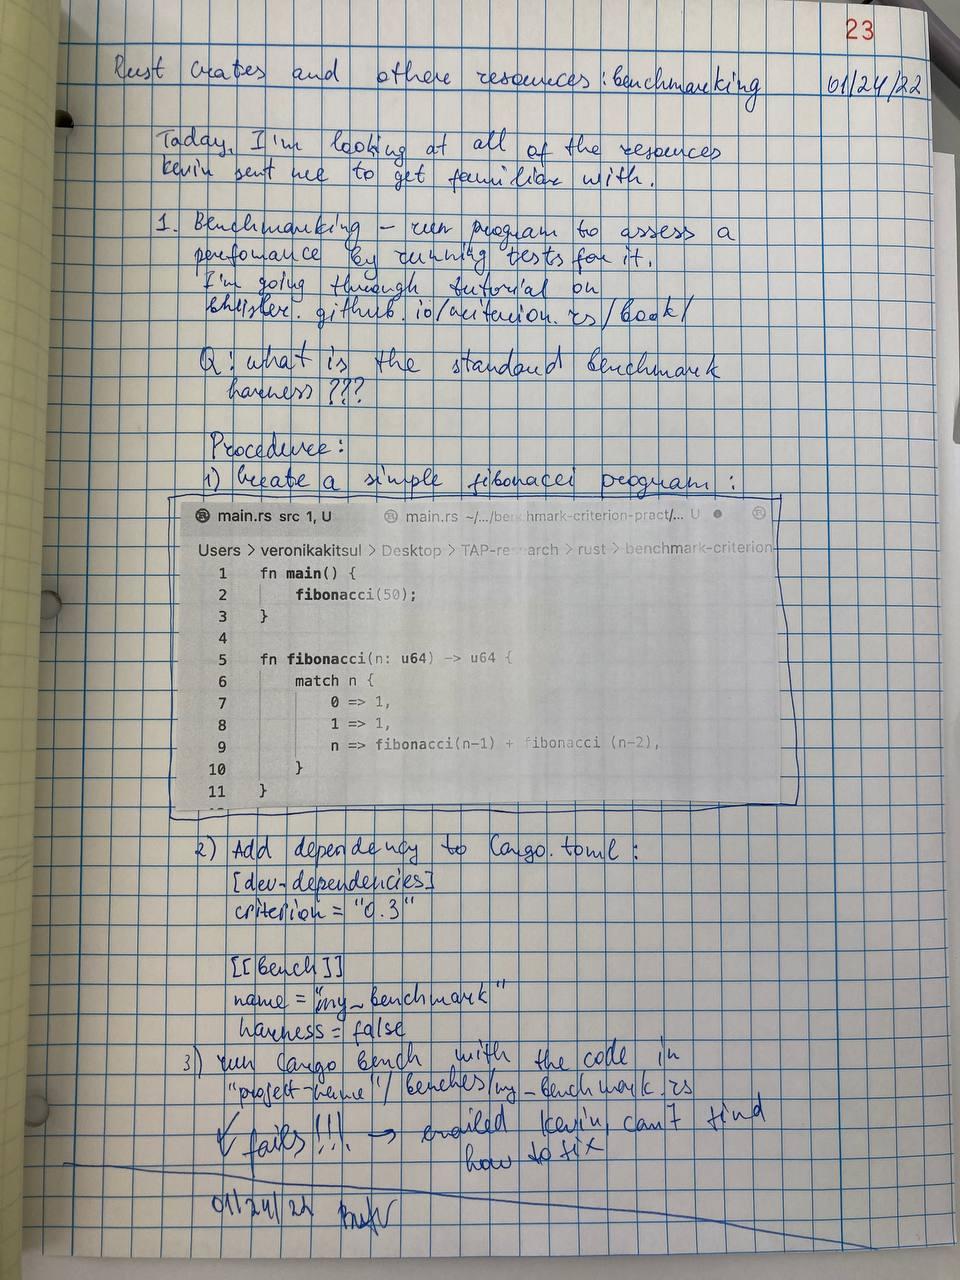 23
Rust crates and othere resources: benchmarking 01/24/22
Taday, I'm looking at all of the resources
Kevin sent me to get familiar with.
1. Benchmarking – run program to assess a
perfomance by running tests for it.
I'm going through tutorial on
bheisler.github.io/criterion.rs/book/
Q: what is the standard benchmark
harness ???
Procedure:
1) Create a simple fibonacci program:
main.rs src 1, U main.rs ~/.../benchmark-criterion-pract/... U
Users > veronikakitsul > Desktop > TAP-research > rust > benchmark-criterion
1 fn main() {
2 fibonacci(50);
3 }
4
5 fn fibonacci(n: u64) -> u64 {
6 match n {
7 0 => 1,
8 1 => 1,
9 n => fibonacci(n-1) + fibonacci (n-2),
10 }
11 }
2) Add dependency to Cargo.toml:
[dev-dependencies]
criterion = "0.3"
[[bench]]
name = "my_benchmark"
harness = false
3) run Cargo bench with the code in
"project-name"/benches/my_benchmark.rs
fails!!!. → emailed Kevin, can't find
how to fix
01/24/22